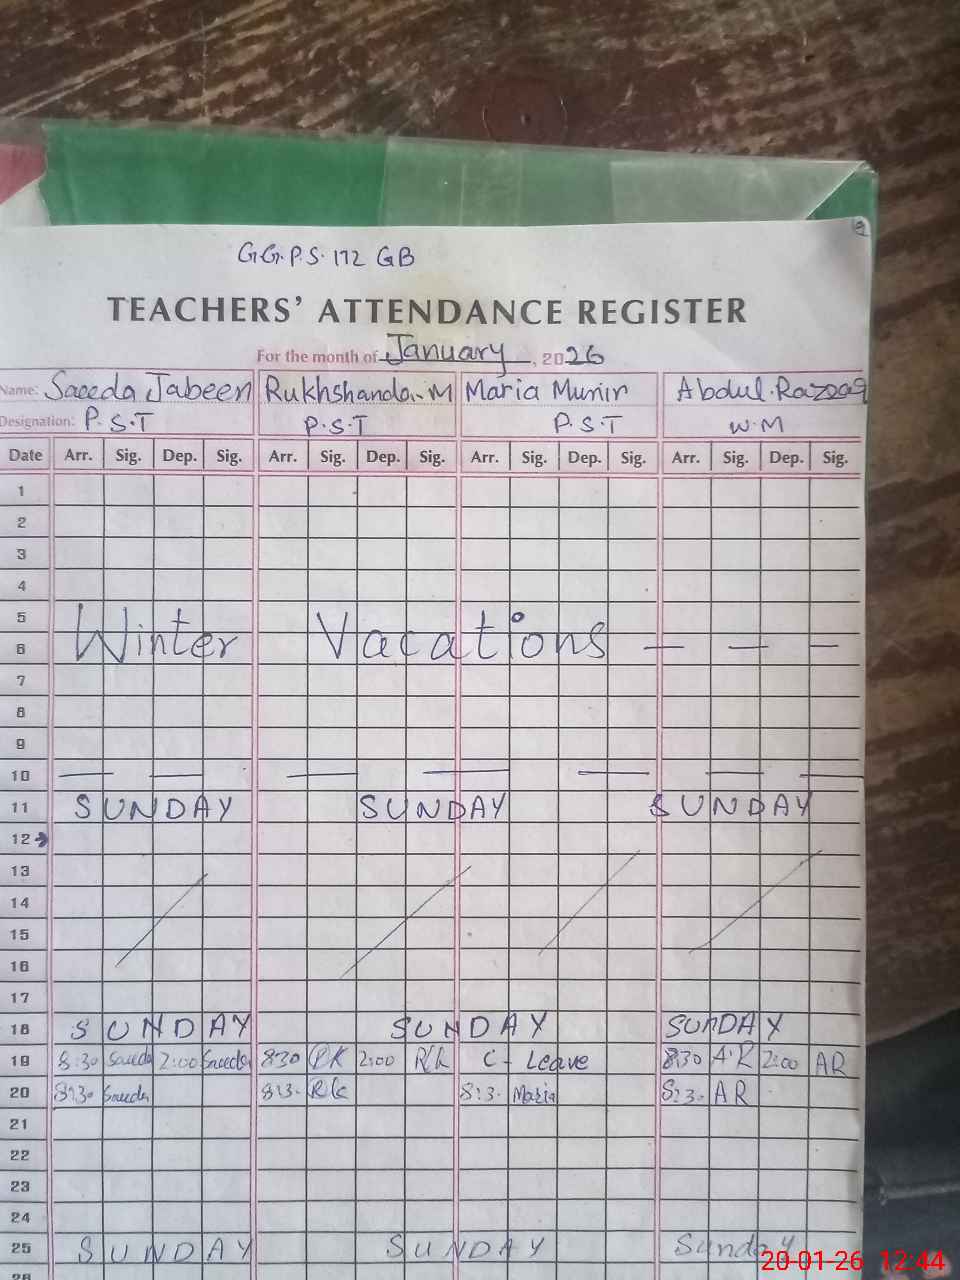 G.G.P.S. 172 GB
TEACHERS' ATTENDANCE REGISTER
For the month of January, 2026
Name: Saeeda Jabeen Rukhshanda.M Maria Munir Abdul.Razzaq
Designation: P.S.T P.S.T P.S.T W.M
Date Arr. Sig. Dep. Sig. Arr. Sig. Dep. Sig. Arr. Sig. Dep. Sig. Arr. Sig. Dep. Sig.
1
2
3
4
5
6 Winter Vacations — — —
7
8
9
10 — — — — — — —
11 SUNDAY SUNDAY SUNDAY
12
13
14
15
16
17
18 SUNDAY SUNDAY SUNDAY
19 8:30 Saeeda 2:00 Saeeda 830 RK 2:00 RK C- Leave 830 A.R 2:00 AR
20 8:30 Saeeda 8:3. RK 8:3. Maria 8:3. AR
21
22
23
24
25 SUNDAY SUNDAY Sunday
26
20-01-26 12:44